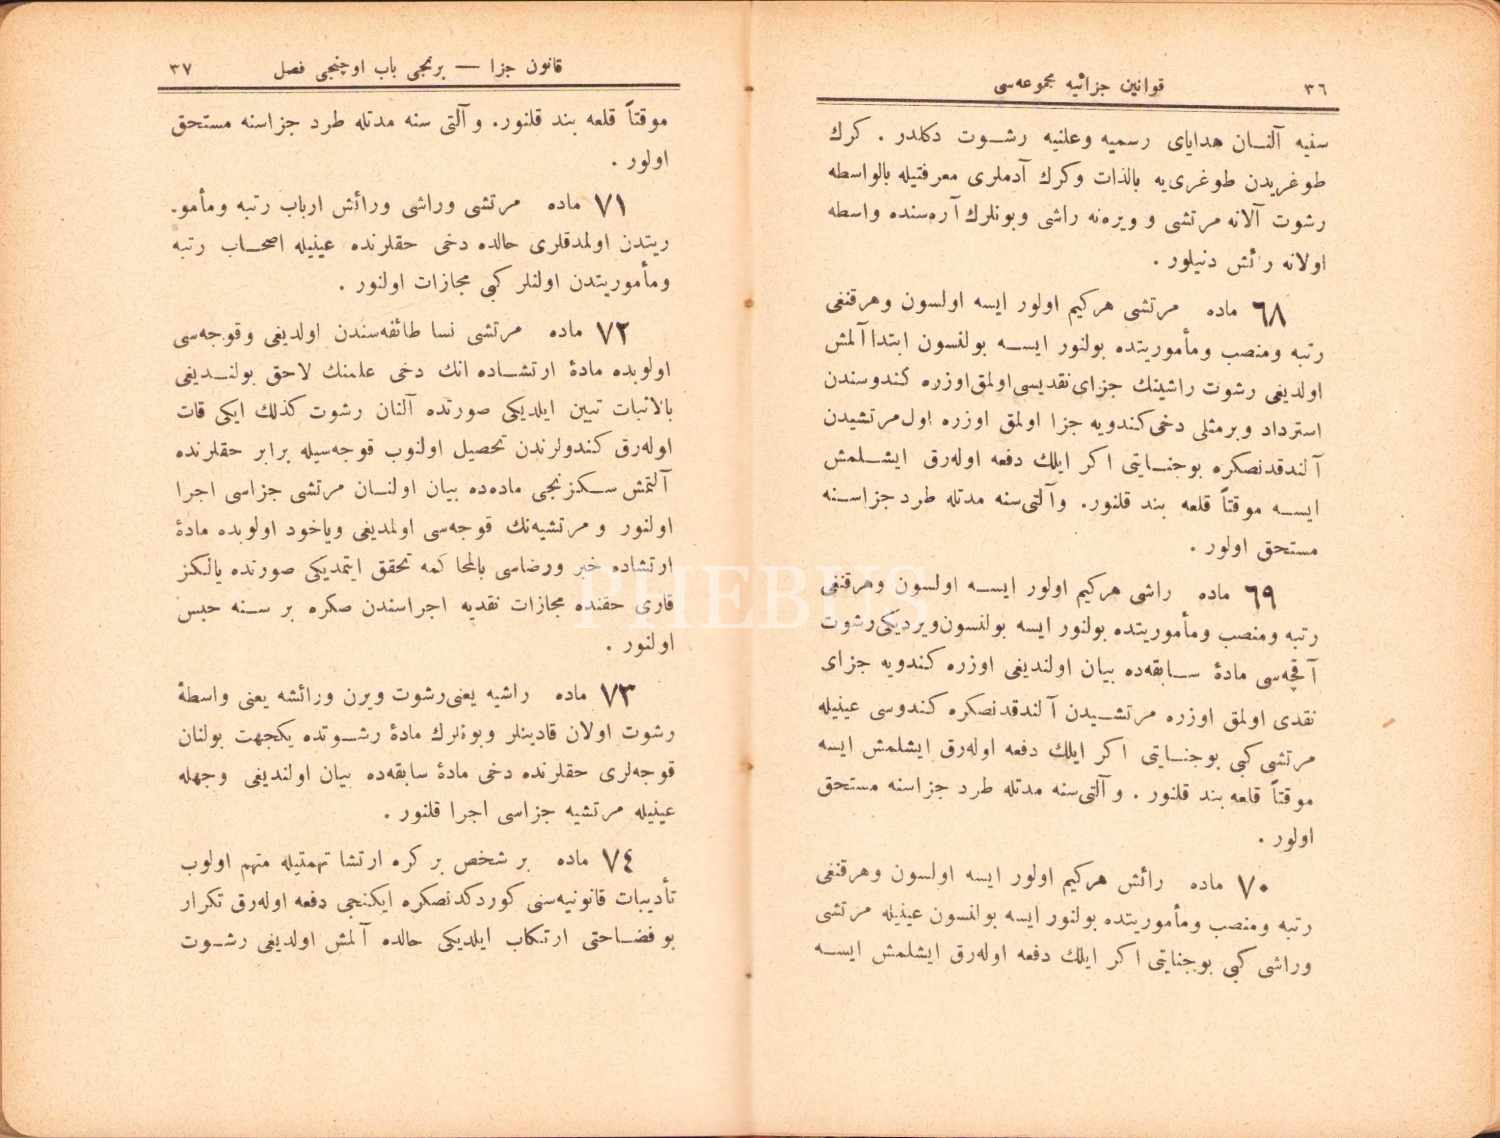 ٣٦
قوانین جزائیه مجموعه‌سی
سنیه آلنان هدایای رسمیه وعلنیه رشوت دکلدر . کرك
طوغریدن طوغری‌یه بالذات وکرك آدملری معرفتیله بالواسطه
رشوت آلانه مرتشی و ویره‌نه راشی وبونلرك آره‌سنده واسطه
اولانه رائش دنیلور .
٦٨ ماده مرتشی هرکیم اولور ایسه اولسون وهرقنغی
رتبه ومنصب ومأموریتده بولنور ایسه بولنسون ابتدا آلمش
اولدیغی رشوت راشینك جزای نقدیسی اولمق اوزره کندوسندن
استرداد وبرمثلی دخی کندویه جزا اولمق اوزره اول مرتشیدن
آلندقدنصکره بوجنایتی اکر ایلك دفعه اوله‌رق ایشلمش
ایسه موقتاً قلعه بند قلنور. وآلتی سنه مدتله طرد جزاسنه
مستحق اولور .
٦٩ ماده راشی هرکیم اولور ایسه اولسون وهرقنغی
رتبه ومنصب ومأموریتده بولنور ایسه بولنسون ویردیکی رشوت
آقچه‌سی مادۀ سابقه‌ده بیان اولندیغی اوزره کندویه جزای
نقدی اولمق اوزره مرتشیدن آلندقدنصکره کندوسی عینیله
مرتشی کبی بوجنایتی اکر ایلك دفعه اوله‌رق ایشلمش ایسه
موقتاً قلعه بند قلنور . وآلتی سنه مدتله طرد جزاسنه مستحق
اولور .
٧٠ ماده رائش هرکیم اولور ایسه اولسون وهرقنغی
رتبه ومنصب ومأموریتده بولنور ایسه بولنسون عینیله مرتشی
وراشی کبی بوجنایتی اکر ایلك دفعه اوله‌رق ایشلمش ایسه
قانون جزا — برنجی باب اوچنجی فصل
٣٧
موقتاً قلعه بند قلنور. وآلتی سنه مدتله طرد جزاسنه مستحق
اولور .
٧١ ماده مرتشی وراشی ورائش ارباب رتبه ومأمو-
ریتدن اولمدقلری حالده دخی حقلرنده عینیله اصحاب رتبه
ومأموریتدن اولنلر کبی مجازات اولنور .
٧٢ ماده مرتشی نسا طائفه‌سندن اولدیغی وقوجه‌سی
اولوبده مادۀ ارتشاده انك دخی علمنك لاحق بولندیغی
بالاثبات تبین ایلدیکی صورتده آلنان رشوت کذلك ایکی قات
اوله‌رق کندولرندن تحصیل اولنوب قوجه‌سیله برابر حقلرنده
آلتمش سکزنجی ماده‌ده بیان اولنان مرتشی جزاسی اجرا
اولنور و مرتشیه‌نك قوجه‌سی اولمدیغی ویاخود اولوبده مادۀ
ارتشاده خبر ورضاسی بالمحاکمه تحقق ایتمدیکی صورتده یالکز
قاری حقنده مجازات نقدیه اجراسندن صکره بر سنه حبس
اولنور .
٧٣ ماده راشیه یعنی رشوت ویرن ورائشه یعنی واسطۀ
رشوت اولان قادینلر وبونلرك مادۀ رشوتده یکجهت بولنان
قوجه‌لری حقلرنده دخی مادۀ سابقه‌ده بیان اولندیغی وجهله
عینیله مرتشیه جزاسی اجرا قلنور .
٧٤ ماده بر شخص بر کره ارتشا تهمتیله متهم اولوب
تأدیبات قانونیه‌سنی کوردکدنصکره ایکنجی دفعه اوله‌رق تکرار
بو فضاحتی ارتکاب ایلدیکی حالده آلمش اولدیغی رشوت
PHEBUS